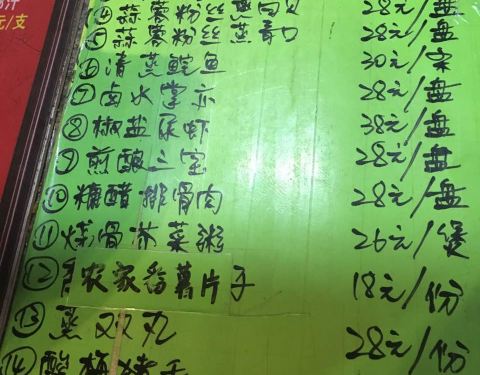 元/支
④蒜蓉粉丝蒸 28元/盘
⑤蒜蓉粉丝蒸 28元/盘
⑥清蒸鲩鱼 30元/
⑦卤水掌亦 28元/盘
⑧椒盐尿虾 38元/盘
⑨煎酿三宝 28元/盘
⑩糖醋排骨肉 28元/盘
⑪烧骨芥菜粥 26元/煲
⑫农家番薯片子 18元/份
⑬蒸双丸 28元/份
⑭酸梅猪手